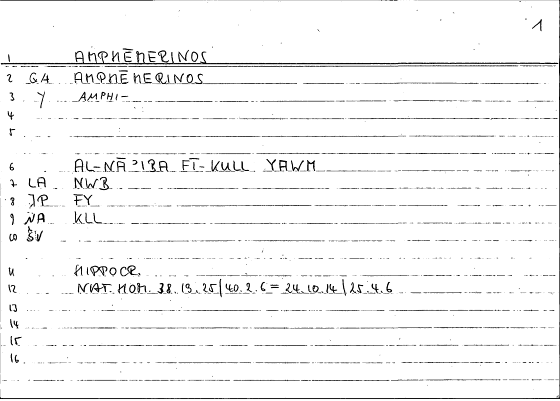 1
1 AMPHĒMERINOS
2 GA AMPHĒMERINOS
3 Y AMPHI-
4
5
6 AL-NĀʾIBA FĪ-KULL YAWM
7 LA NWB
8 JP FY
9 NA KLL
10 ŠV
11 HIPPOCR.
12 NAT. HOM. 38.19.25|40.2.6 = 24.10.14|25.4.6
13
14
15
16